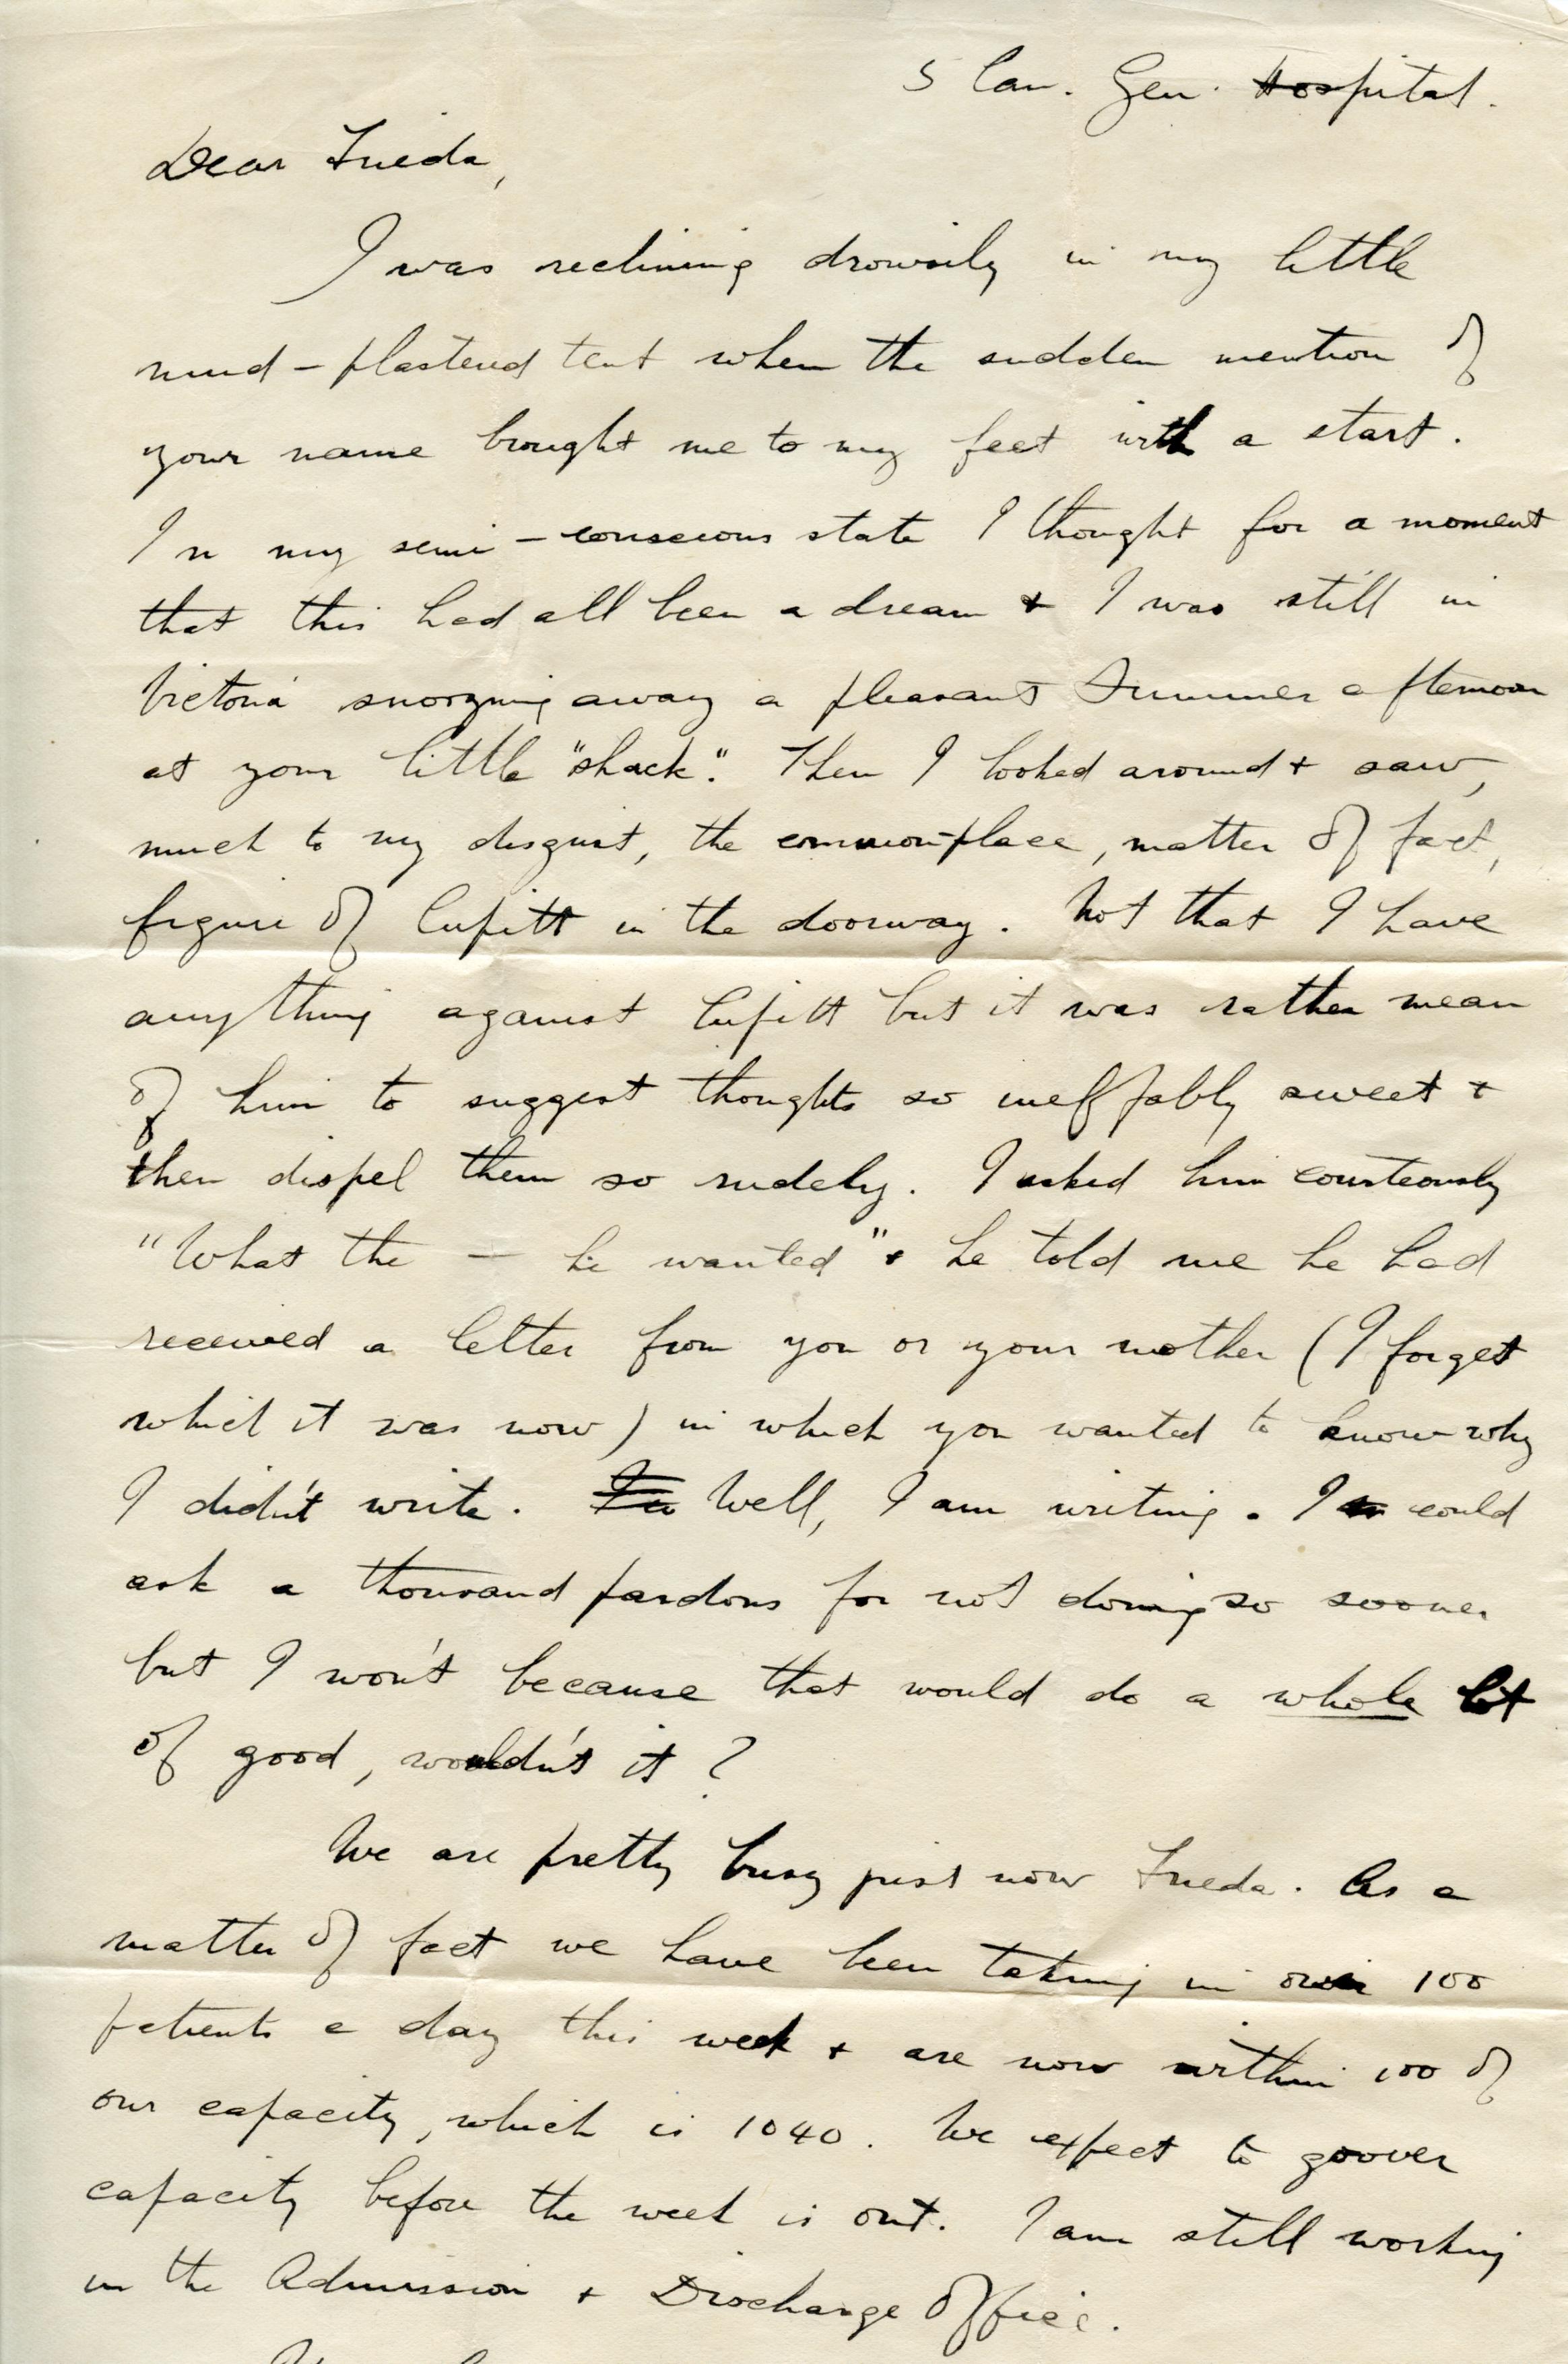 5 Can. Gen. Hospital.
Dear Frieda,
I was reclining drowsily in my little
mud-plastered tent when the sudden mention of
your name brought me to my feet with a start.
In my semi-conscious state I thought for a moment
that this had all been a dream + I was still in
Victoria snoozing away a pleasant Summer afternoon
at your little "shack". Then I looked around + saw,
much to my disgust, the commonplace, matter of fact,
figure of Cupitt in the doorway. Not that I have
anything against Cupitt but it was rather mean
of him to suggest thoughts so ineffably sweet +
then dispel them so rudely. I asked him courteously
"What the — he wanted" + he told me he had
received a letter from you or your mother (I forget
which it was now) in which you wanted to know why
I didn't write. Well, I am writing. I could
ask a thousand pardons for not doing so sooner
but I won't because that would do a whole lot
of good, wouldn't it?
We are pretty busy just now Frieda. As a
matter of fact we have been taking in over 100
patients a day this week + are now within 100 of
our capacity, which is 1040. We expect to go over
capacity before the week is out. I am still working
in the Admission + Discharge Office.